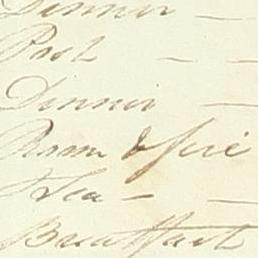 Dinner —
Port — —
Dinner —
Room & fire
Tea — —
Breakfast